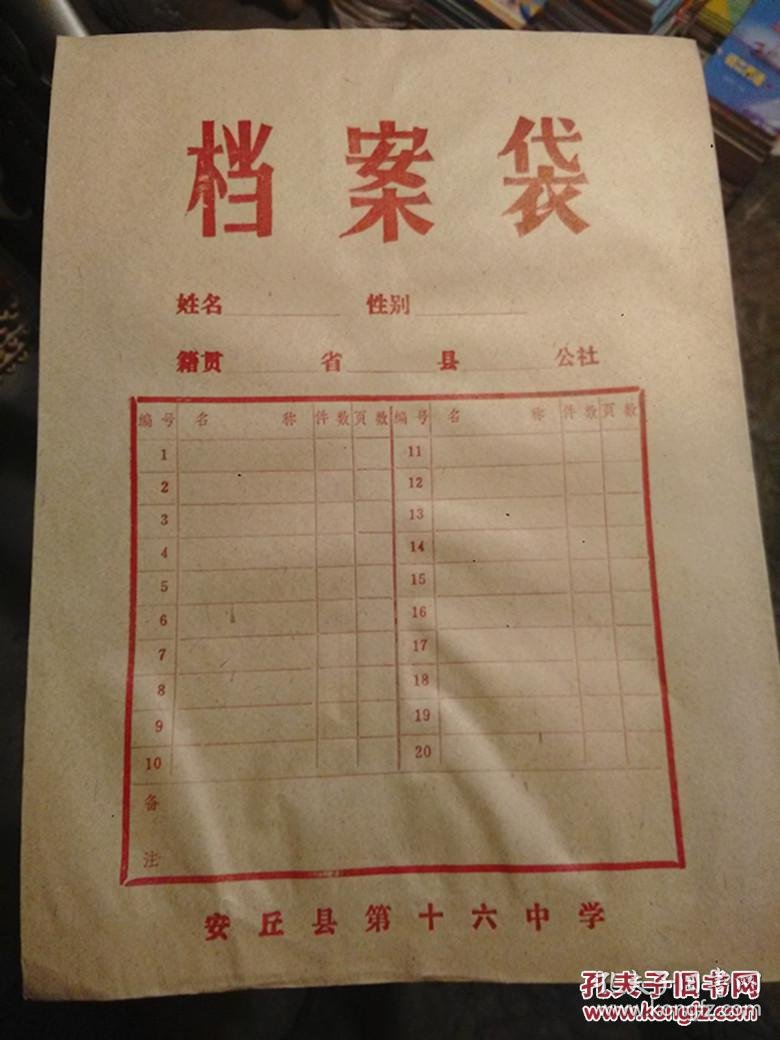 档案袋
姓名 性别
籍贯 省 县 公社
编号 名称 件数 页数 编号 名称 件数 页数
1 11
2 12
3 13
4 14
5 15
6 16
7 17
8 18
9 19
10 20
备注
安丘县第十六中学
孔夫子旧书网
www.kongfz.com